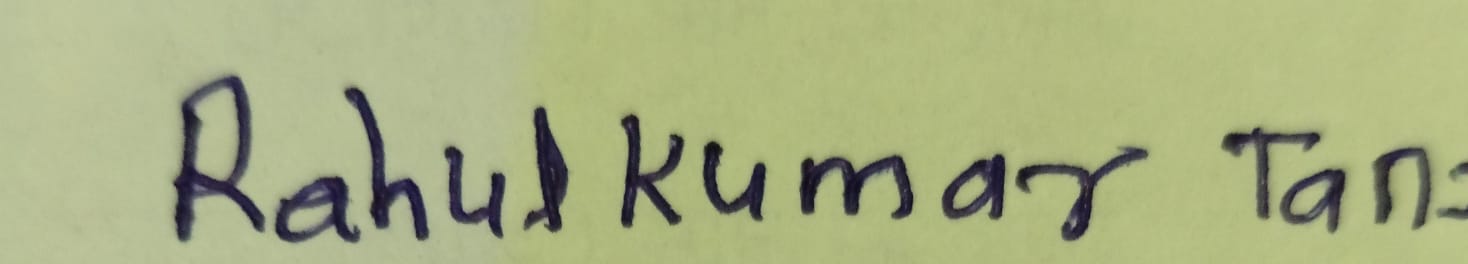 Rahul Kumar Tan